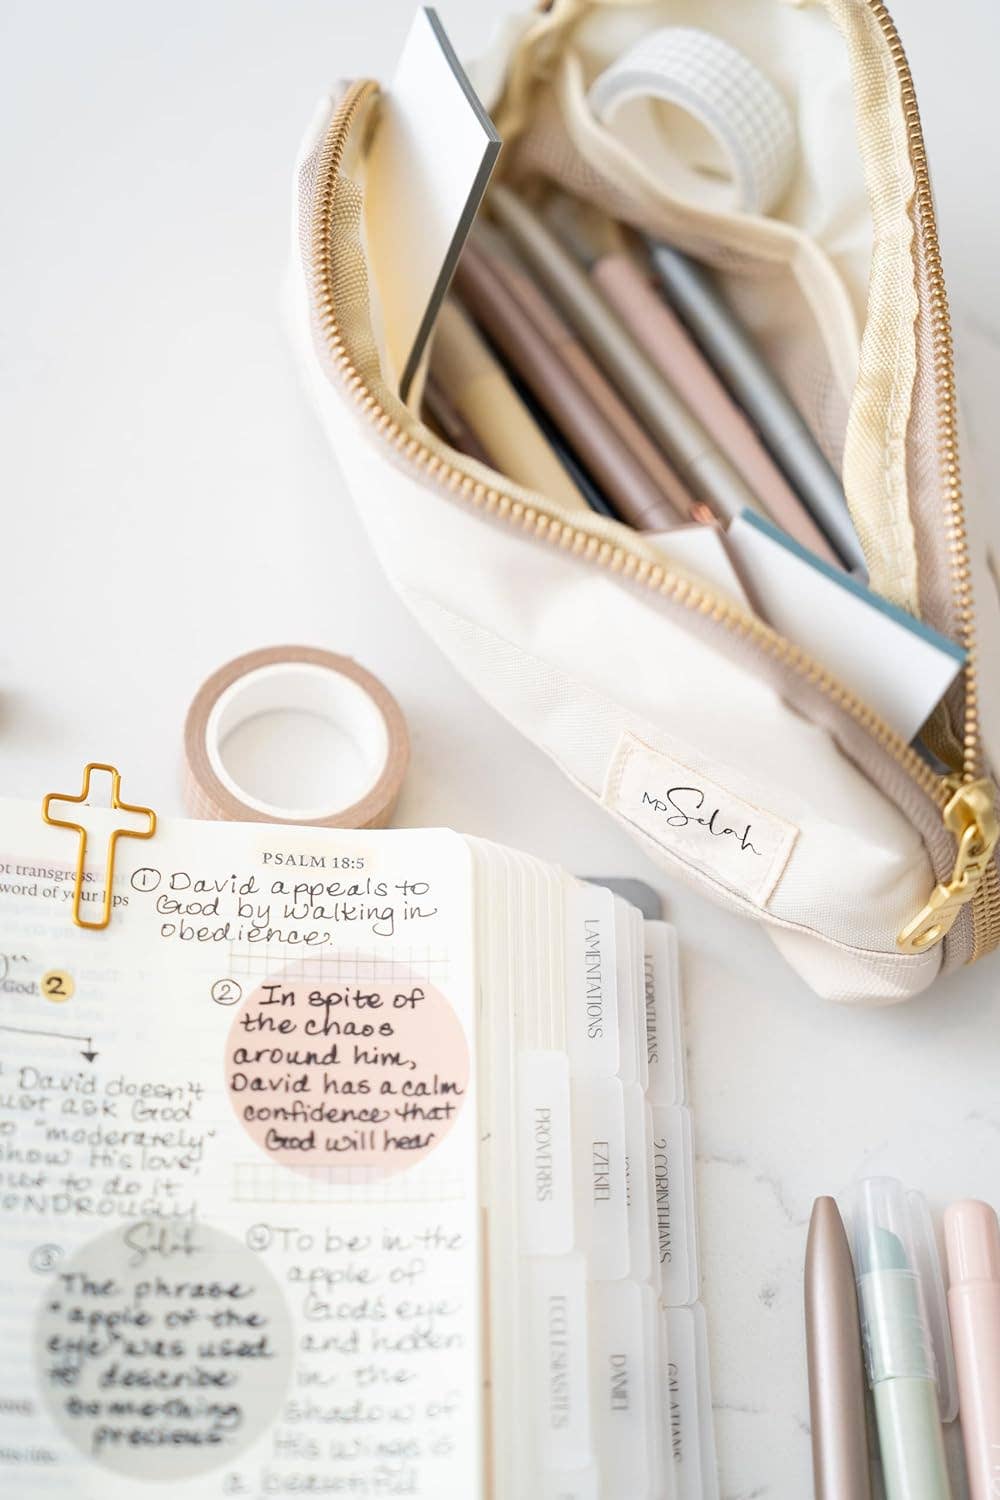 MP Selah
PSALM 18:5
ot transgress.
word of your lips
① David appeals to
God by walking in
obedience.
God; 2
② In spite of
the chaos
around him,
David has a calm
confidence that
God will hear
David doesn't
ust ask God
"moderately"
how His love,
ut to do it
ONDROUSLY.
Selah
③
The phrase
"apple of the
eye" was used
to describe
something
precious.
④ To be in the
apple of
God's eye
and hidden
in the
shadow of
His wings is
a beautiful
LAMENTATIONS
1 CORINTHIANS
PROVERBS
EZEKIEL
2 CORINTHIANS
ECCLESIASTES
DANIEL
GALATIANS